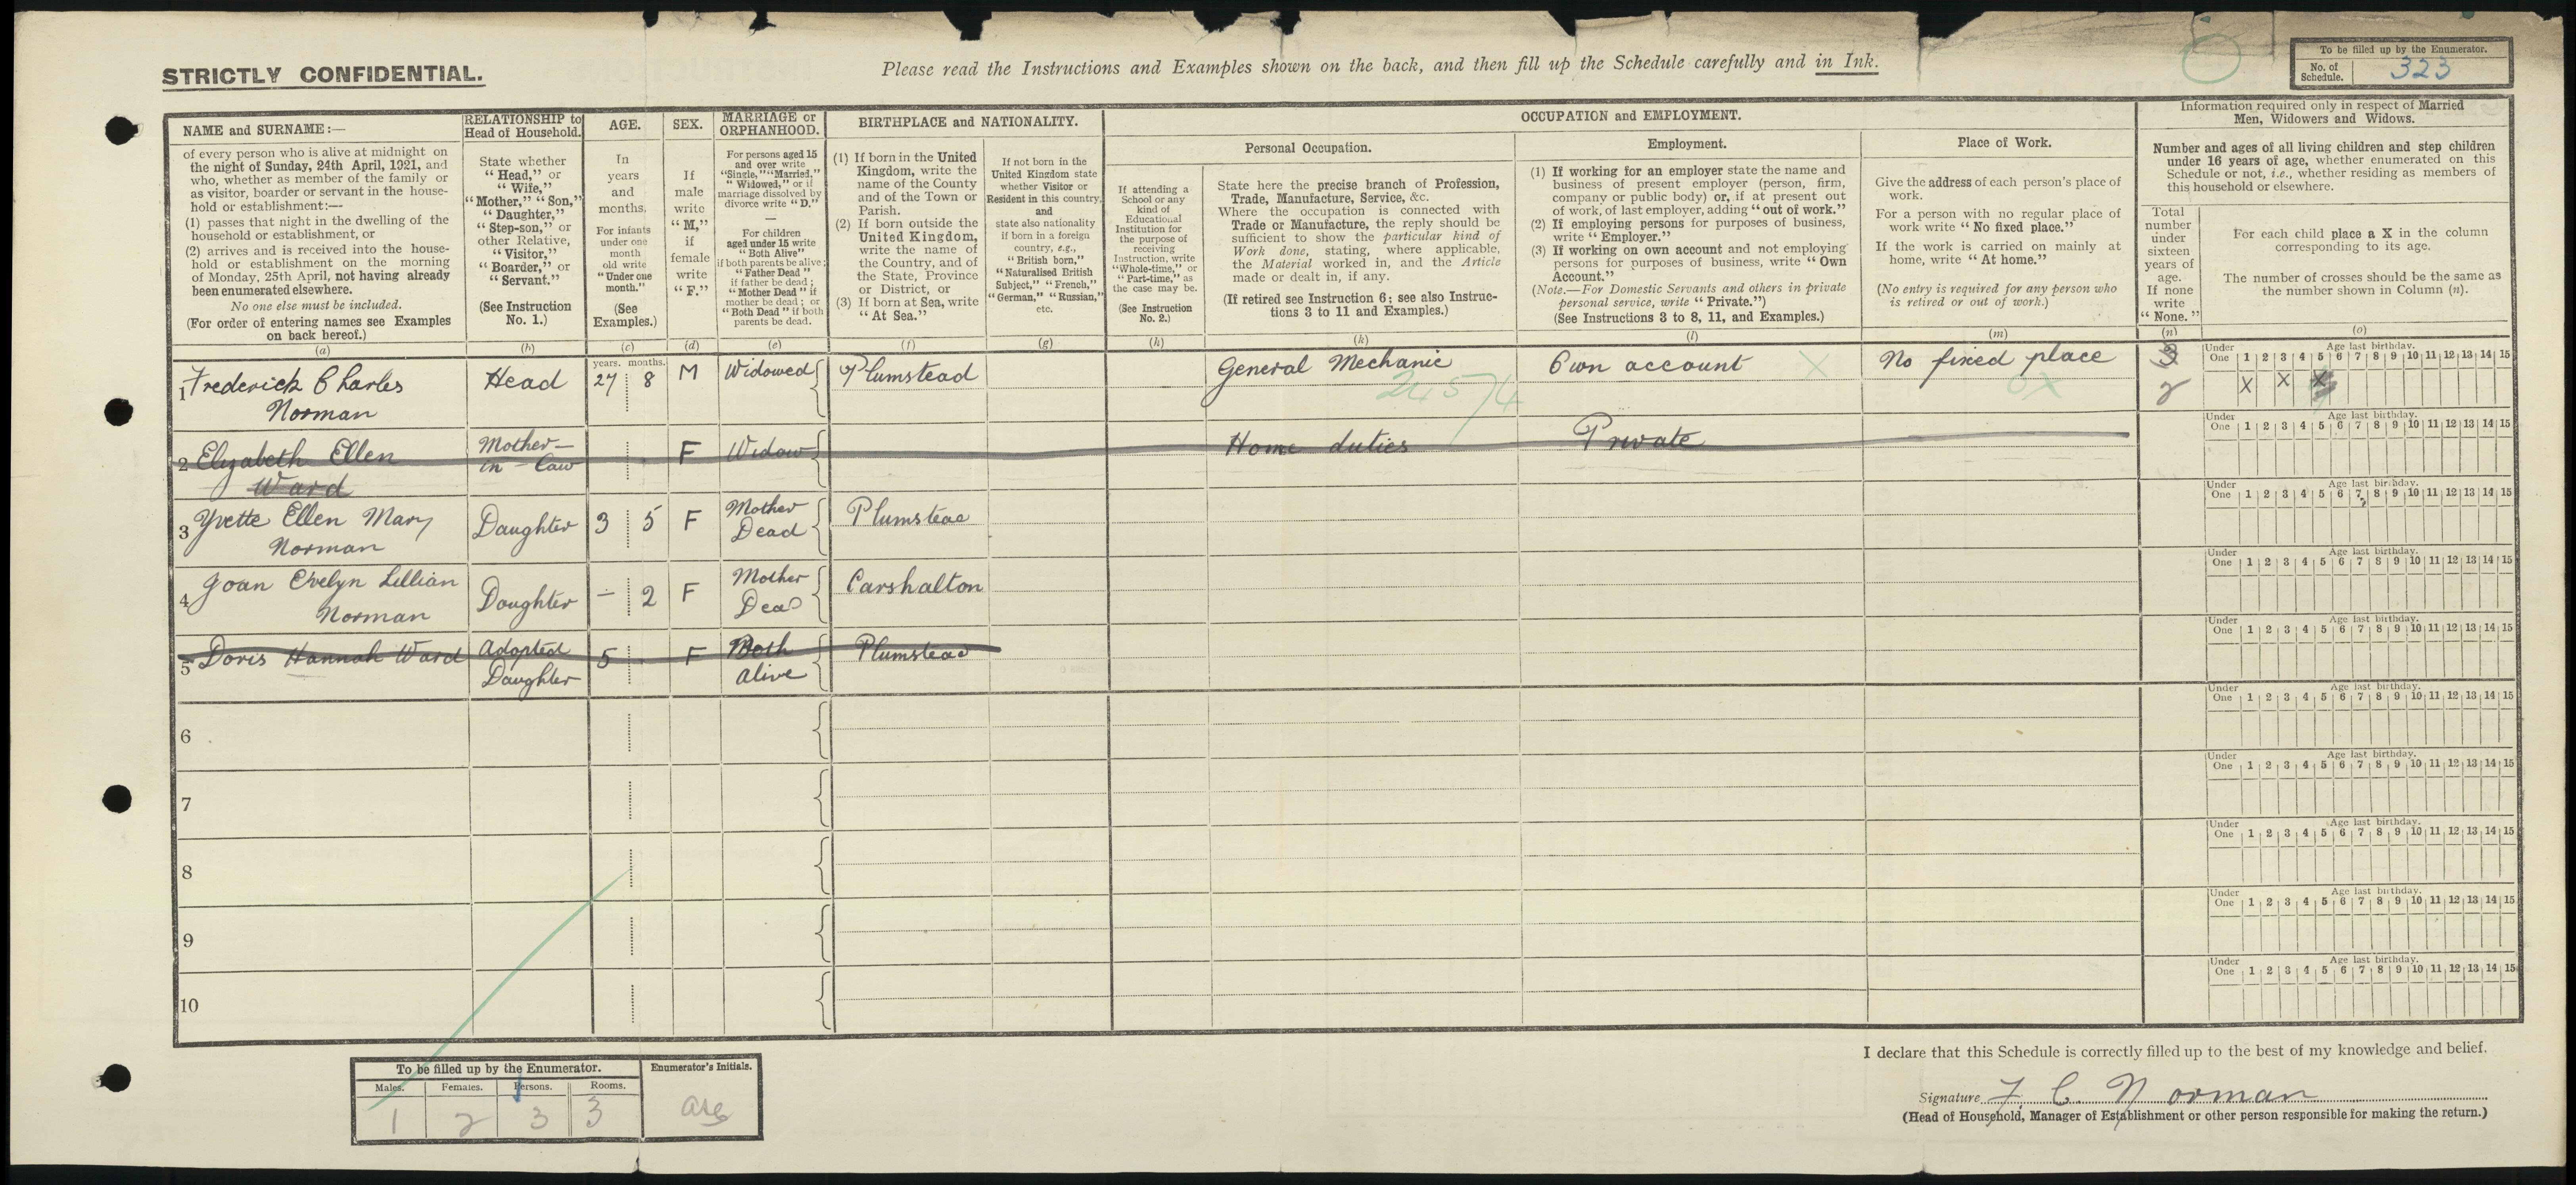 STRICTLY CONFIDENTIAL.
Please read the Instructions and Examples shown on the back, and then fill up the Schedule carefully and in Ink.
To be filled up by the Enumerator.
No. of Schedule. 323
NAME and SURNAME:—
of every person who is alive at midnight on
the night of Sunday, 24th April, 1921, and
who, whether as member of the family or
as visitor, boarder or servant in the house-
hold or establishment:—
(1) passes that night in the dwelling of the
household or establishment, or
(2) arrives and is received into the house-
hold or establishment on the morning
of Monday, 25th April, not having already
been enumerated elsewhere.
No one else must be included.
(For order of entering names see Examples
on back hereof.)
(a)
RELATIONSHIP to
Head of Household.
State whether
"Head," or
"Wife,"
"Mother," "Son,"
"Daughter,"
"Step-son," or
other Relative,
"Visitor,"
"Boarder," or
"Servant."
(See Instruction
No. 1.)
(b)
AGE.
In
years
and
months.
For infants
under one
month
old write
"Under one
month."
(See
Examples.)
(c)
SEX.
If
male
write
"M,"
if
female
write
"F."
(d)
MARRIAGE or
ORPHANHOOD.
For persons aged 15
and over write
"Single," "Married,"
"Widowed," or if
marriage dissolved by
divorce write "D."
—
For children
aged under 15 write
"Both Alive"
if both parents be alive;
"Father Dead"
if father be dead;
"Mother Dead" if
mother be dead; or
"Both Dead" if both
parents be dead.
(e)
BIRTHPLACE and NATIONALITY.
(1) If born in the United
Kingdom, write the
name of the County
and of the Town or
Parish.
(2) If born outside the
United Kingdom,
write the name of
the Country, and of
the State, Province
or District, or
(3) If born at Sea, write
"At Sea."
(f)
If not born in the
United Kingdom state
whether Visitor or
Resident in this country,
and
state also nationality
if born in a foreign
country, e.g.,
"British born,"
"Naturalised British
Subject," "French,"
"German," "Russian,"
etc.
(g)
OCCUPATION and EMPLOYMENT.
Personal Occupation.
If attending a
School or any
kind of
Educational
Institution for
the purpose of
receiving
Instruction, write
"Whole-time," or
"Part-time," as
the case may be.
(See Instruction
No. 2.)
(h)
State here the precise branch of Profession,
Trade, Manufacture, Service, &c.
Where the occupation is connected with
Trade or Manufacture, the reply should be
sufficient to show the particular kind of
Work done, stating, where applicable,
the Material worked in, and the Article
made or dealt in, if any.
(If retired see Instruction 6; see also Instruc-
tions 3 to 11 and Examples.)
(k)
Employment.
(1) If working for an employer state the name and
business of present employer (person, firm,
company or public body) or, if at present out
of work, of last employer, adding "out of work."
(2) If employing persons for purposes of business,
write "Employer."
(3) If working on own account and not employing
persons for purposes of business, write "Own
Account."
(Note.—For Domestic Servants and others in private
personal service, write "Private.")
(See Instructions 3 to 8, 11, and Examples.)
(l)
Place of Work.
Give the address of each person's place of
work.
For a person with no regular place of
work write "No fixed place."
If the work is carried on mainly at
home, write "At home."
(No entry is required for any person who
is retired or out of work.)
(m)
Information required only in respect of Married
Men, Widowers and Widows.
Number and ages of all living children and step children
under 16 years of age, whether enumerated on this
Schedule or not, i.e., whether residing as members of
this household or elsewhere.
Total
number
under
sixteen
years of
age.
If none
write
"None."
(n)
For each child place a X in the column
corresponding to its age.
The number of crosses should be the same as
the number shown in Column (n).
(o)
years. months.
Under One Age last birthday. 1 2 3 4 5 6 7 8 9 10 11 12 13 14 15
1 Frederick Charles Norman Head 27 8 M Widowed Plumstead General Mechanic Own account X No fixed place 3 2 X X X
24574 0X
Under One Age last birthday. 1 2 3 4 5 6 7 8 9 10 11 12 13 14 15
2 Elizabeth Ellen Ward Mother-in-Law F Widow Home duties Private
Under One Age last birthday. 1 2 3 4 5 6 7 8 9 10 11 12 13 14 15
3 Yvette Ellen Mary Norman Daughter 3 5 F Mother Dead Plumstead
Under One Age last birthday. 1 2 3 4 5 6 7 8 9 10 11 12 13 14 15
4 Joan Evelyn Lillian Norman Daughter – 2 F Mother Dead Carshalton
Under One Age last birthday. 1 2 3 4 5 6 7 8 9 10 11 12 13 14 15
5 Doris Hannah Ward Adopted Daughter 5 F Both alive Plumstead
Under One Age last birthday. 1 2 3 4 5 6 7 8 9 10 11 12 13 14 15
6
Under One Age last birthday. 1 2 3 4 5 6 7 8 9 10 11 12 13 14 15
7
Under One Age last birthday. 1 2 3 4 5 6 7 8 9 10 11 12 13 14 15
8
Under One Age last birthday. 1 2 3 4 5 6 7 8 9 10 11 12 13 14 15
9
Under One Age last birthday. 1 2 3 4 5 6 7 8 9 10 11 12 13 14 15
10
To be filled up by the Enumerator.
Males. Females. Persons. Rooms.
1 2 3 3
Enumerator's Initials.
I declare that this Schedule is correctly filled up to the best of my knowledge and belief.
Signature F. C. Norman
(Head of Household, Manager of Establishment or other person responsible for making the return.)